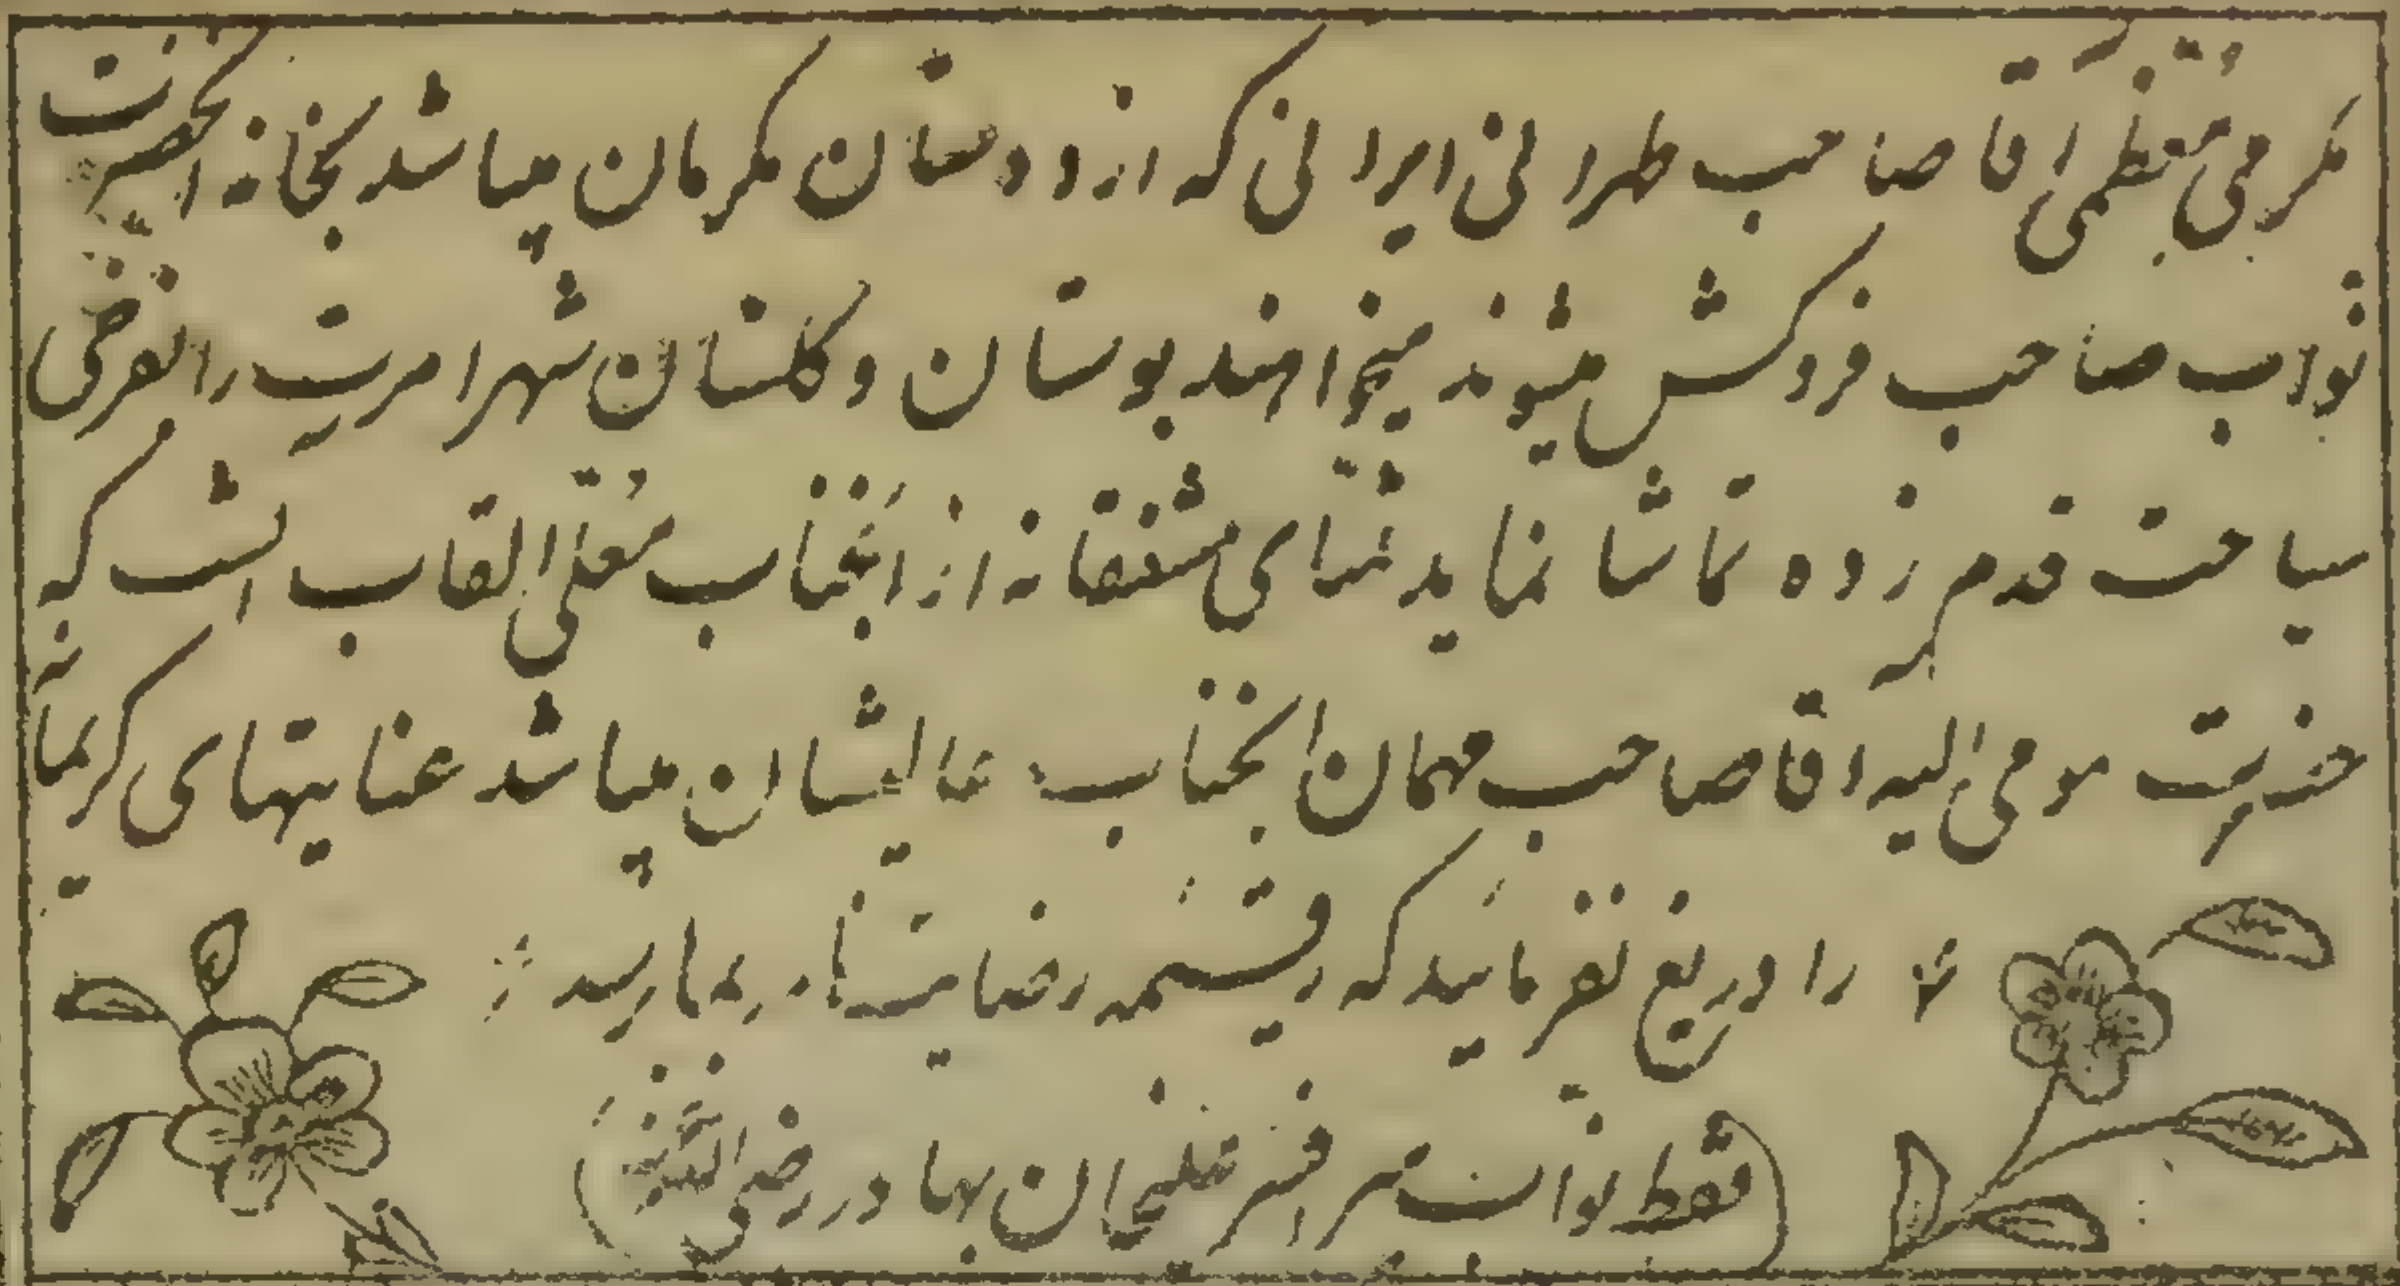 مکرمی معظمی آقا صاحب طهرانی ایرانی که از دوستان مکرمان میباشد بخانه آنحضرت
نواب صاحب فروکش میشوند میخواهند بوستان و گلستان شهر امرت را بفرخی
سیاحت قدم زده تماشا نماید تمنای مشفقانه از آنجناب معلی القاب است که
حضرت مومی الیه آقا صاحب مهمان آنجناب عالیشان میباشد عنایتهای کریمانه
را دریغ نفرمایید که رقیمه رضایت بما رسید
فقط نواب سر افسر خان بهادر رضی